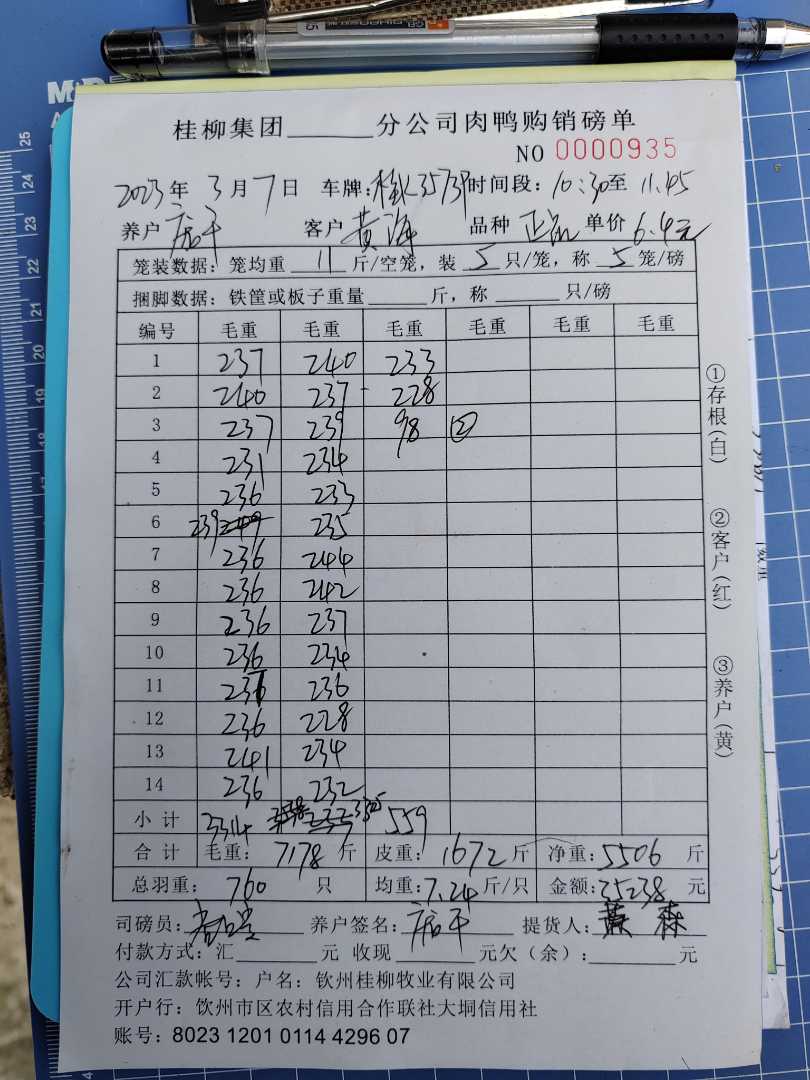 桂柳集团______分公司肉鸭购销磅单
NO 0000935
2023年 3月7日 车牌: 时间段: 10:30至 11.45
养户 唐干 客户 黄海 品种 单价 6.4元
笼装数据: 笼均重 11 斤/空笼, 装 5 只/笼, 称 5 笼/磅
捆脚数据: 铁筐或板子重量______斤, 称______只/磅
编号 毛重 毛重 毛重 毛重 毛重 毛重
1 237 240 233
2 240 237 228
3 237 239 98 ②
4 231 234
5 236 233
6 239 235
7 236 244
8 236 242
9 236 237
10 236 234
11 237 236
12 236 228
13 241 234
14 236 232
小计 3314 3305 559
合计 毛重: 7178 斤 皮重: 1672斤 净重: 5506 斤
总羽重: 760 只 均重: 7.24斤/只 金额: 35238 元
司磅员: 养户签名: 唐干 提货人: 黄 森
付款方式: 汇______元 收现______元欠(余):______元
公司汇款帐号: 户名: 钦州桂柳牧业有限公司
开户行: 钦州市区农村信用合作联社大垌信用社
账号: 8023 1201 0114 4296 07
①存根(白)
②客户(红)
③养户(黄)
25
24
23
22
21
20
19
18
17
16